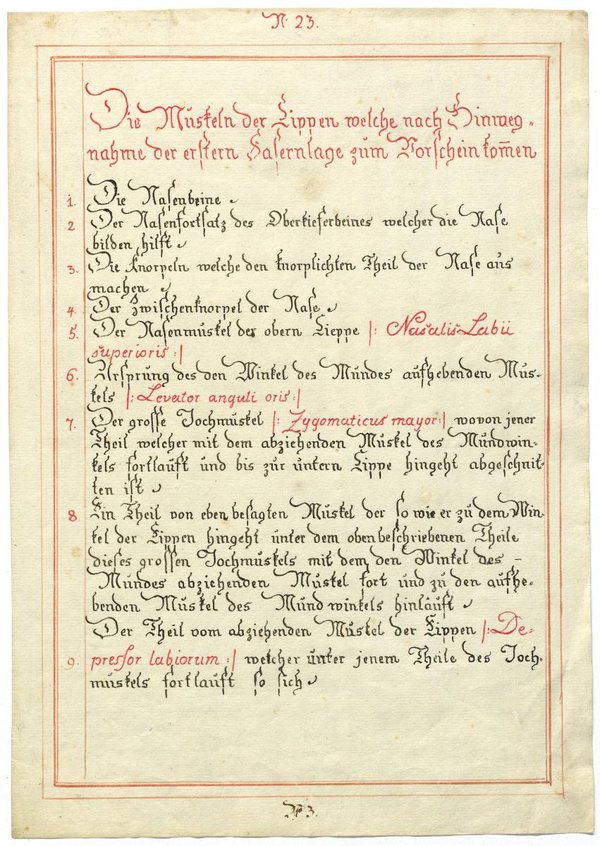 N. 23.
Die Muskeln der Lippen welche nach Hinweg-
nahme der erstern Fasernlage zum Vorschein kom̄en
1. Die Nasenbeine
2 Der Nasenfortsatz des Oberkieferbeines welcher die Nase
bilden hilft
3. Die Knorpeln welche den knorplichten Theil der Nase aus
machen
4. Der Zwischenknorpel der Nase
5. Der Nasenmuskel der obern Lieppe |: Nasalis Labii
superioris :|
6. Ursprung des den Winkel des Mundes aufhebenden Mus-
kels |: Levator anguli oris :|
7. Der grosse Jochmuskel |: Zygomaticus mayor :| wovon jener
Theil welcher mit dem abziehenden Muskel des Mundwin-
kels fortlauft und bis zur untern Lippe hingeht abgeschnit-
ten ist
8 Ein Theil von eben besagten Muskel der so wie er zu dem Win-
kel der Lippen hingeht unter dem obenbeschriebenen Theile
dieses grossen Jochmuskels mit dem den Winkel des -
Mundes abziehenden Muskel fort und zu den aufhe-
benden Muskel des Mundwinkels hinläuft
Der Theil vom abziehenden Muskel der Lippen |: De-
9. pressor labiorum :| welcher unter jenem Theile des Joch-
muskels fortlauft so sich
N 3.